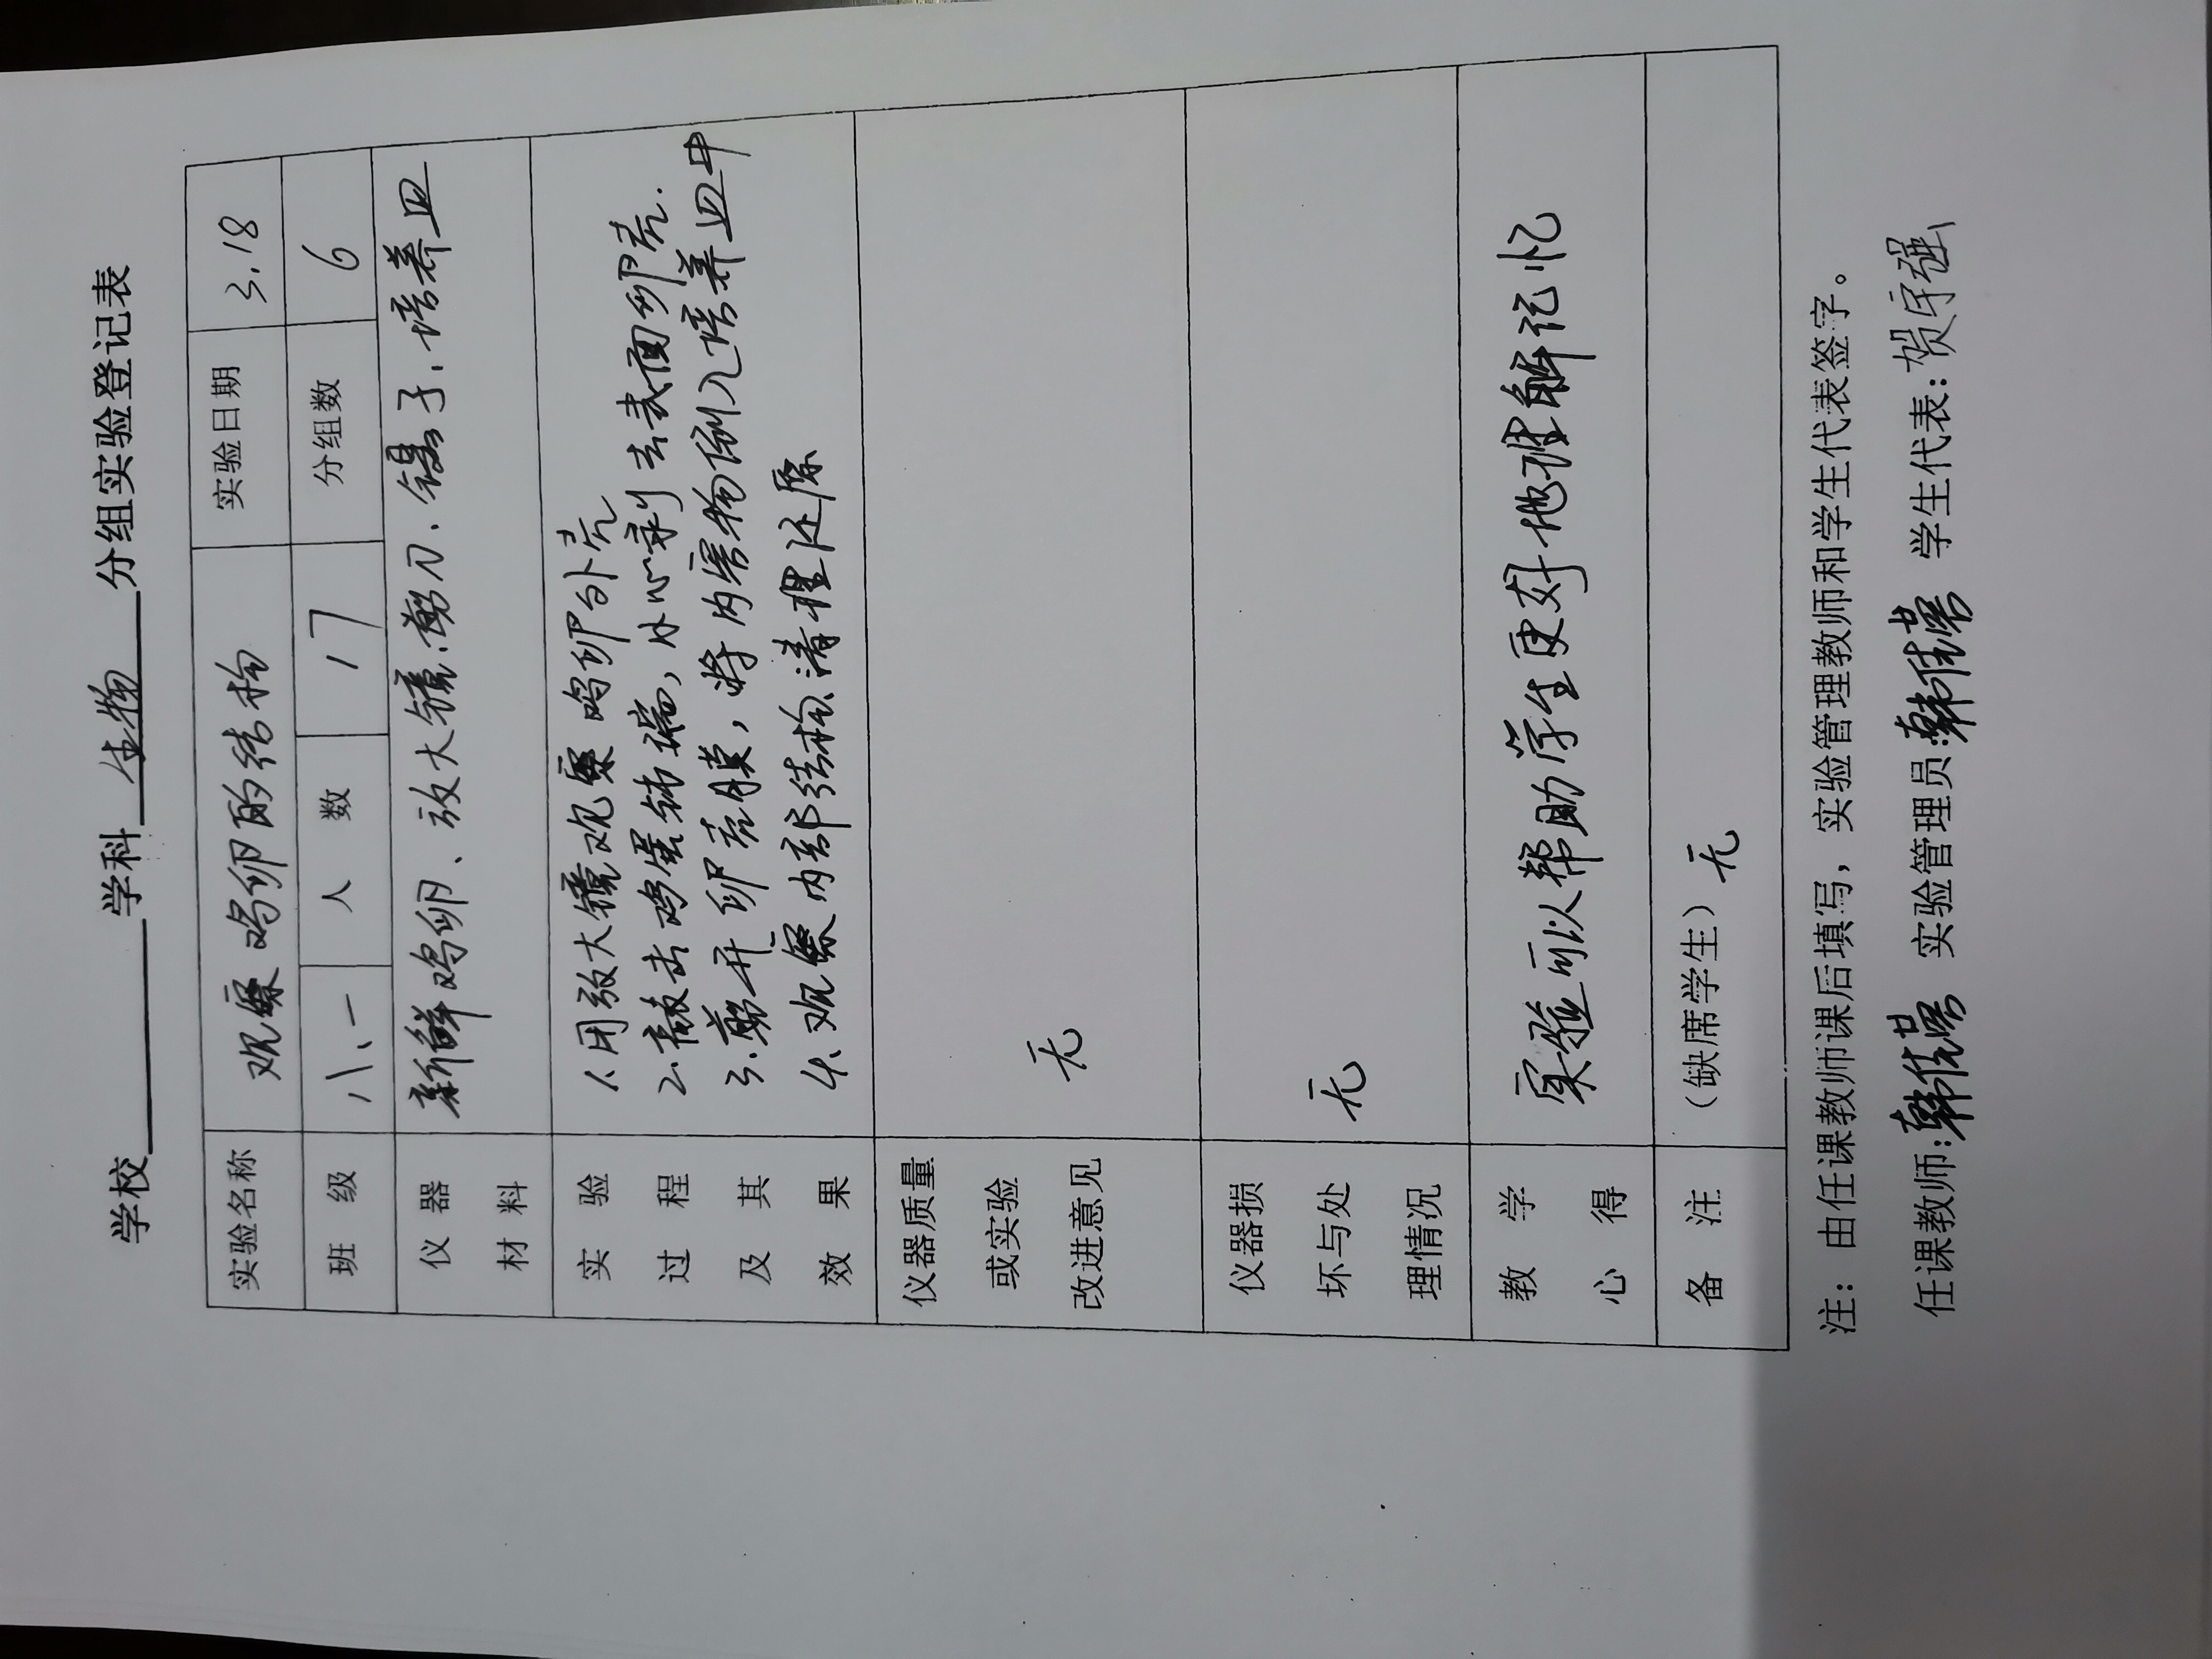 学校________学科 生物 分组实验登记表
实验名称 观察鸡卵的结构 实验日期 3.18
班级 八、一 人数 17 分组数 6
仪器材料 新鲜鸡卵、放大镜、剪刀、镊子、培养皿
实验过程及其效果 1.用放大镜观察鸡卵外壳
2.敲击鸡蛋钝端,小心剥去表面卵壳.
3.剪开卵壳膜,将内容物倒入培养皿中
4.观察内部结构,清理还原
仪器质量或实验改进意见 无
仪器损坏与处理情况 无
教学心得 实验可以帮助学生更好地理解记忆
备注 (缺席学生) 无
注:由任课教师课后填写,实验管理教师和学生代表签字。
任课教师: 韩佳 实验管理员: 韩佳 学生代表: 贺宇强